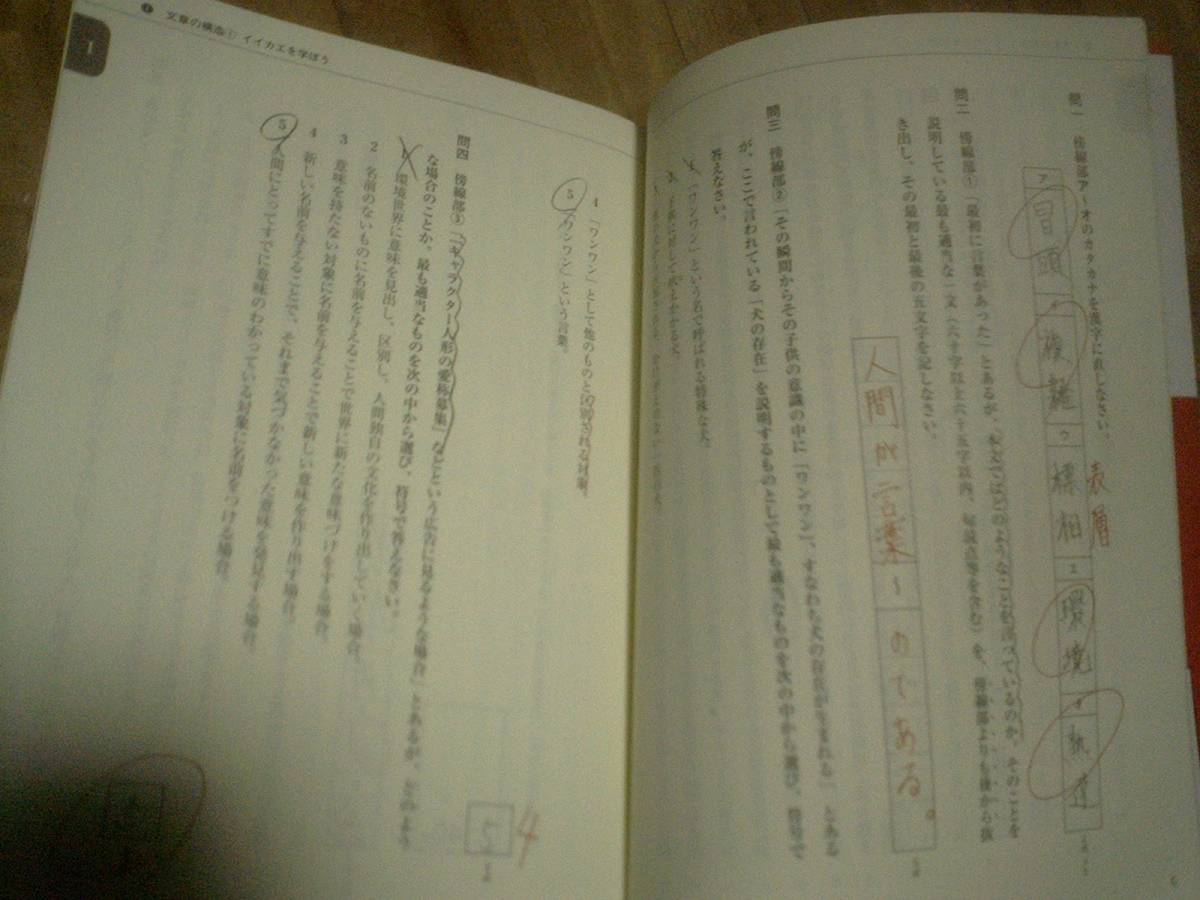 問一　傍線部ア～オのカタカナを漢字に直しなさい。
ア 冒頭
複雑
ウ 標相
表層
エ 環境
オ
問二　傍線部①「最初に言葉があった」とあるが、本文ではどのようなことを言っているのか。そのことを
説明している最も適当な一文(六十字以上六十五字以内、句読点等を含む)を、傍線部よりも後から抜
き出し、その最初と最後の五文字を記しなさい。
人間が言葉～のである。
問三　傍線部②「その瞬間からその子供の意識の中に「ワンワン」、すなわち犬の存在が生まれる」とある
が、ここで言われている「犬の存在」を説明するものとして最も適当なものを次の中から選び、符号で
答えなさい。
1 「ワンワン」という名で呼ばれる特殊な犬。
4 「ワンワン」として他のものと区別される対象。
5 「ワンワン」という言葉。
6
❶ 文章の構造① イイカエを学ぼう
1
問四　傍線部③「「キャラクター人形の愛称募集」などという広告に見るような場合」とあるが、どのよう
な場合のことか。最も適当なものを次の中から選び、符号で答えなさい。
1 環境世界に意味を見出し、区別し、人間独自の文化を作り出していく場合。
2 名前のないものに名前を与えることで世界に新たな意味づけをする場合。
3 意味を持たない対象に名前を与えることで新しい意味を作り出す場合。
4 新しい名前を与えることで、それまで気づかなかった意味を発見する場合。
5 人間にとってすでに意味のわかっている対象に名前をつける場合。
5
4